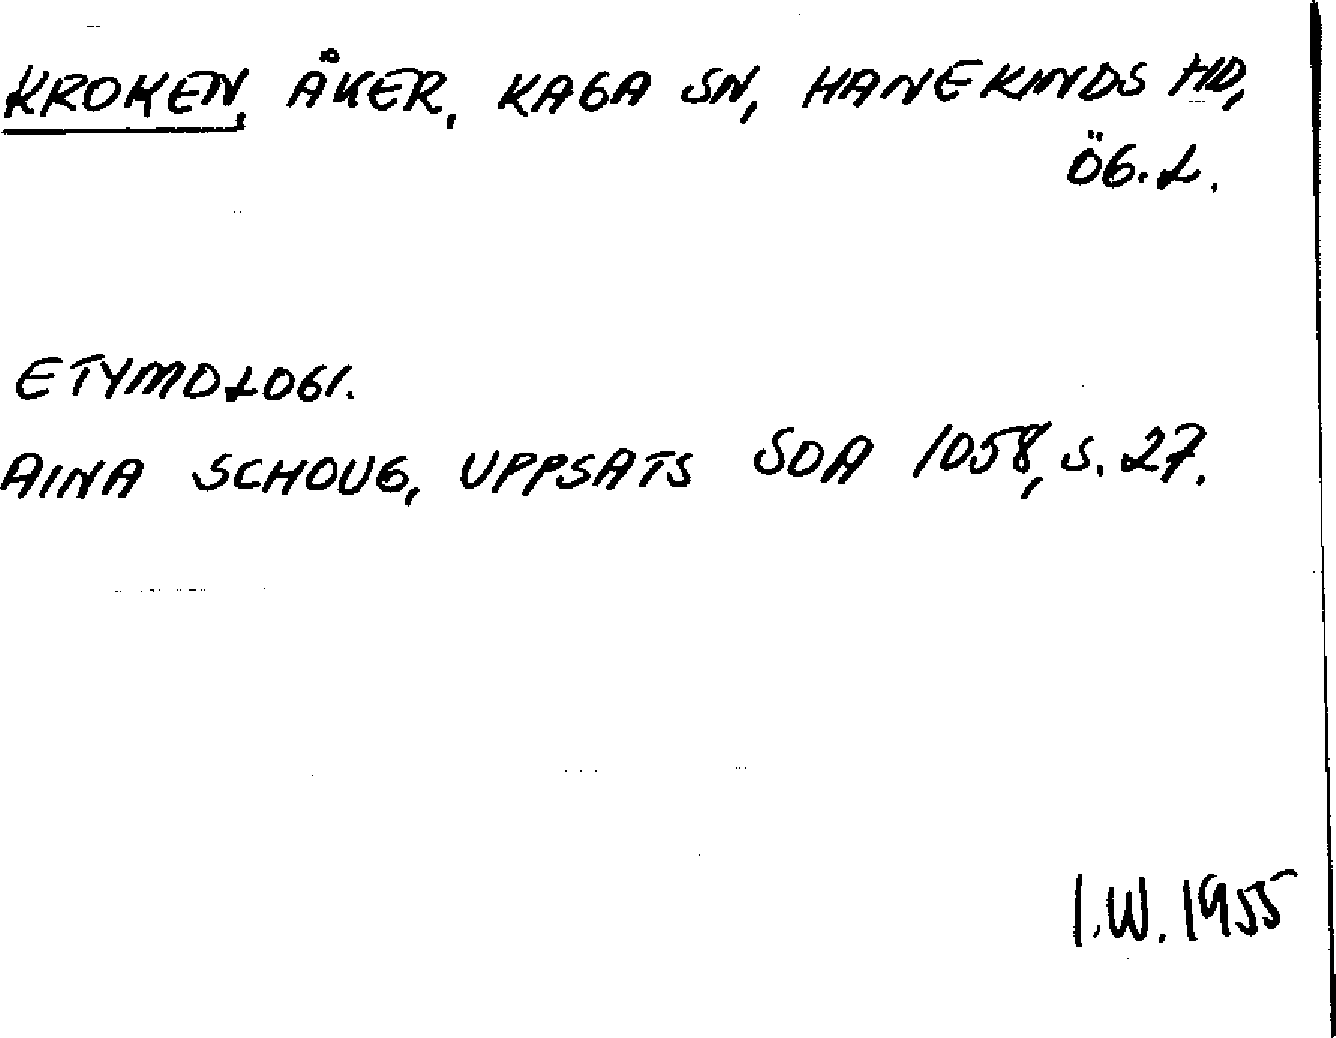 KROKEN, ÅKER, KAGA SN, HANEKINDS HD,
ÖG.L.
ETYMOLOGI.
AINA SCHOUG, UPPSATS SOA 1058, S. 27.
I.W. 1955